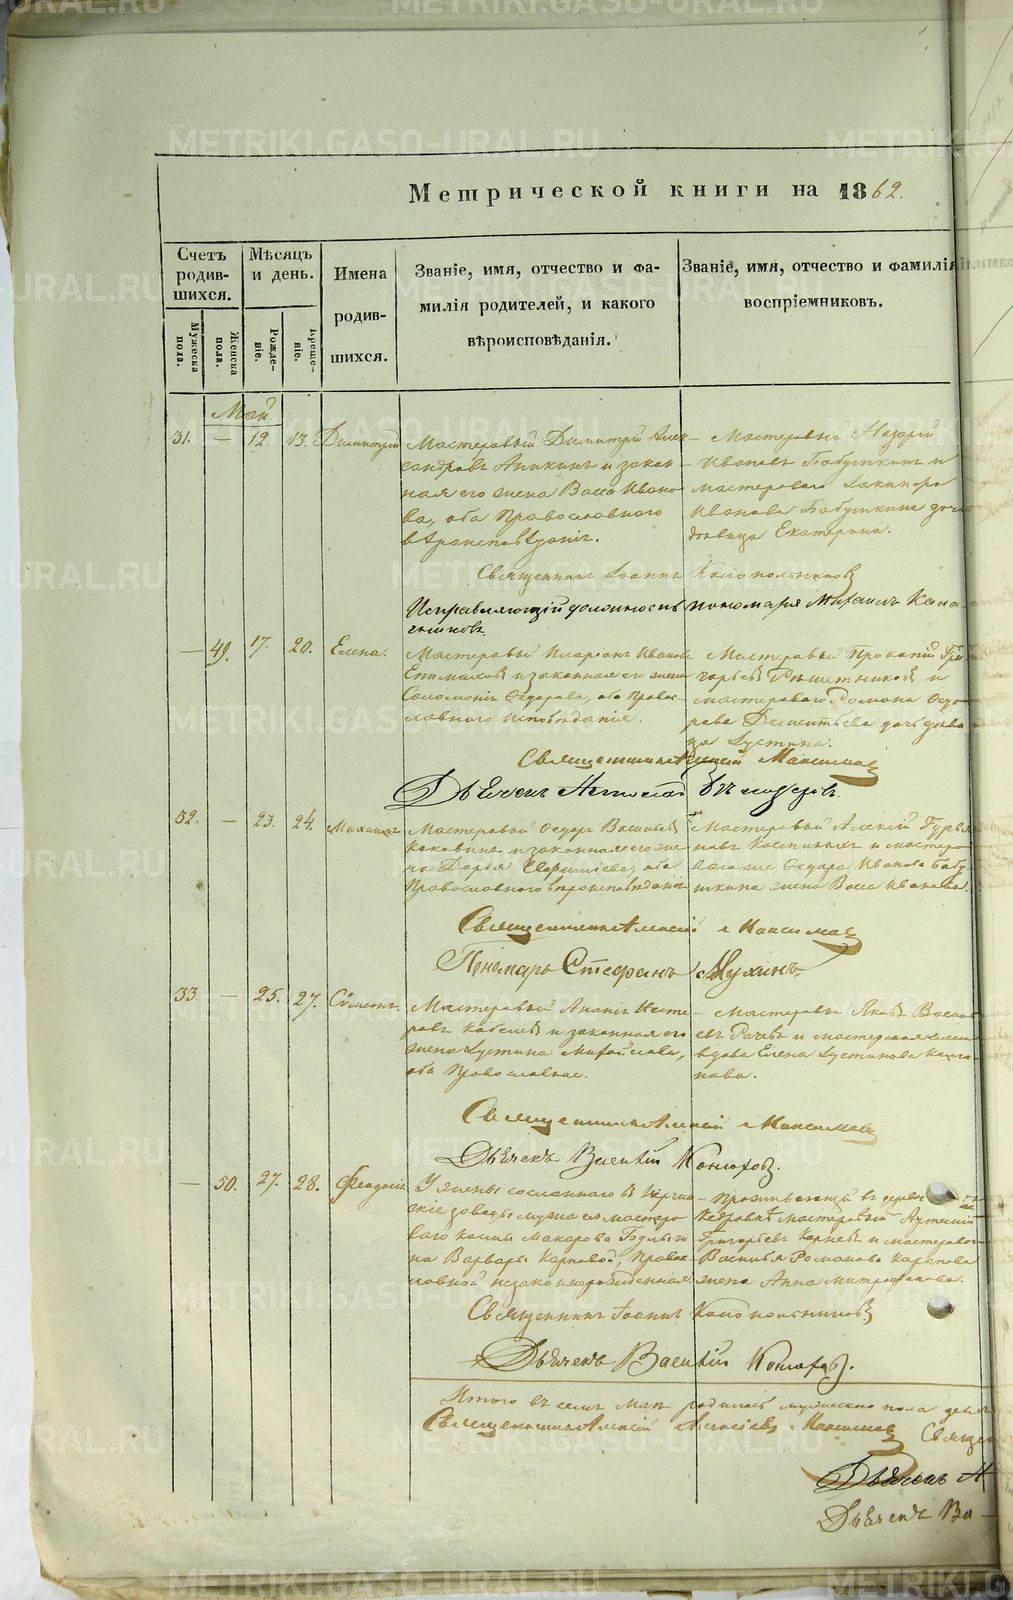 METRIKI.GASO-URAL.RU
Метрической книги на 1862.
Счетъ родив-шихся.
Мѣсяцъ и день.
Имена родив-шихся.
Званіе, имя, отчество и фа-
милія родителей, и какого
вѣроисповѣданія.
Званіе, имя, отчество и фамилія
воспріемниковъ.
Мужеска пола.
Женска пола.
Рожде-ніе.
Креще-ніе.
Май
31. — 12. 13. Димитрій
Мастеровый Димитрій Алек-
сандровъ Аникинъ и закон-
ная его жена Васса Ивано-
ва, оба Православнаго
вѣроисповѣданія.
Мастеровый Назарій
Ивановъ Бабушкинъ и
мастероваго
Иванова Бабушкина дочь
дѣвица Екатерина.
Священникъ Іоаннъ
Исправляющій должность пономаря Михаилъ Кала-
чниковъ
— 49. 17. 20. Елена.
Мастеровый Иларіонъ Ивановъ
и законная его жена
Соломонія Ѳедорова, оба Право-
славнаго исповѣданія.
Мастеровый Прокопій Гри-
горьевъ Рѣшетниковъ и
мастероваго Романа Ѳедо-
рова Дементьева дочь дѣви-
ца Іустина.
Священникъ Алексій Максимов
Дьячекъ
32. — 23. 24. Михаилъ
Мастеровый Ѳедоръ Васильевъ
и законная его же-
на Дарья Евфиміева, оба
Православнаго вѣроисповѣданія
Мастеровый Алексій Гурья-
новъ и мастеро-
ваго Ѳедора Иванова Бабу-
шкина жена Васса Иванова.
Священникъ Алексій Максимов
Пономарь Стефанъ Мухинъ
33. — 25. 27. Сѵмеонъ.
Мастеровый Ананій Несте-
ровъ и законная его
жена Іустина Михайлова,
оба Православные.
Мастеровый Яковъ Василь-
евъ и мастерская жена
вдова Елена Іустинова
Священникъ Алексій Максимов
Дьячекъ Василій Комаров.
— 50. 27. 28. Ѳеодосія
У жены сосланнаго в Нерчин-
скіе заводы мужа ея мастеро-
ваго Косьмы Макарова
на Варвары Карповой, Право-
славной незаконнорожденная.
Проживающій въ деревнѣ
мастеровый Артемій
Григорьевъ Корневъ и мастероваго
Василья Романова
жена Анна Митрофанова.
Священникъ Іоаннъ
Дьячекъ Василій Комаров.
Итого въ семъ Маѣ родилось мужеска пола девять
Священникъ Алексій Алексіевъ Максимов Священ
Дьячекъ А
Дьячекъ Ва